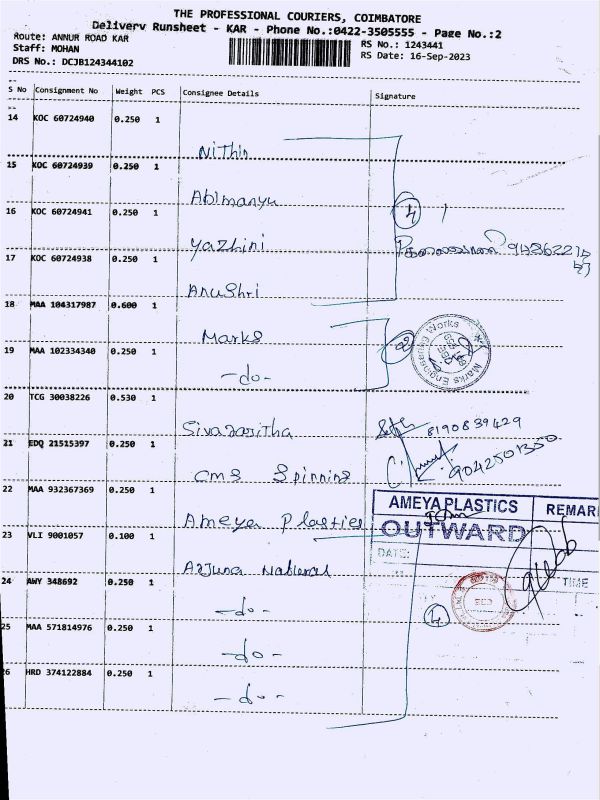 THE PROFESSIONAL COURIERS, COIMBATORE
Delivery Runsheet - KAR - Phone No.:0422-3505555 - Page No.:2
Route: ANNUR ROAD KAR
RS No.: 1243441
Staff: MOHAN
RS Date: 16-Sep-2023
DRS No.: DCJB124344102
S No Consignment No Weight PCS Consignee Details Signature
14 KOC 60724940 0.250 1
Nithin
15 KOC 60724939 0.250 1
Abimanyu
16 KOC 60724941 0.250 1
4
Yazhini
17 KOC 60724938 0.250 1
Anushri
18 MAA 104317987 0.600 1
Marks
Marks Engineering Works
19 MAA 102334340 0.250 1
2
-do-
20 TCG 30038226 0.530 1
Sivasaritha 8190839429
21 EDQ 21515397 0.250 1
CMS Spinning 9042501350
22 MAA 932367369 0.250 1
AMEYA PLASTICS REMAR
Ameya Plastics
OUTWARD
23 VLI 9001057 0.100 1
DATE:
Arjuna Natural
TIME
24 AWY 348692 0.250 1
-do-
4
25 MAA 571814976 0.250 1
-do-
26 HRD 374122884 0.250 1
-do-